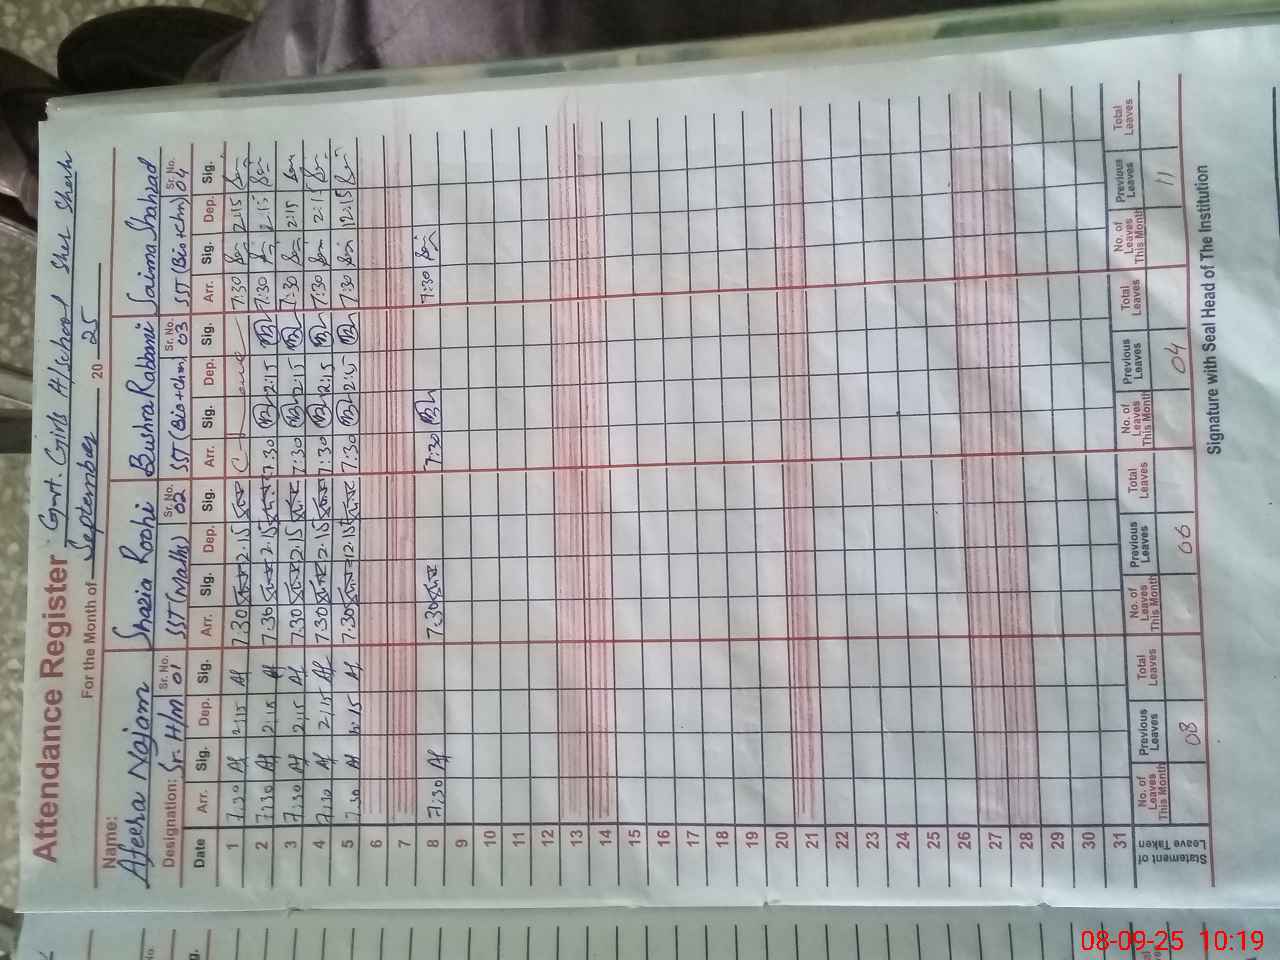 Attendance Register Govt. Girls H/School Sher Shah
For the Month of September 20 25
Name: Afeera Najam Shazia Roohi Bushra Rabbani Saima Shahzad
Designation: Sr. H/M Sr. No. 01 SST (Maths) Sr. No. 02 SST (Bio+Chm) Sr. No. 03 SST (Bio+Chm) Sr. No. 04
Date Arr. Sig. Dep. Sig. Arr. Sig. Dep. Sig. Arr. Sig. Dep. Sig. Arr. Sig. Dep. Sig.
1 7:30 Af 2:15 Af 7:30 2:15 7:30 2:15
2 7:30 Af 2:15 Af 7:30 2:15 7:30 2:15 7:30 2:15
3 7:30 Af 2:15 Af 7:30 2:15 7:30 2:15 7:30 2:15
4 7:30 Af 2:15 Af 7:30 2:15 7:30 2:15 7:30 2:15
5 7:30 Af 12:15 Af 7:30 12:15 7:30 12:15 7:30 12:15
6
7
8 7:30 Af 7:30 7:30 7:30
9
10
11
12
13
14
15
16
17
18
19
20
21
22
23
24
25
26
27
28
29
30
31
Statement of Leave Taken No. of Leaves This Month Previous Leaves Total Leaves No. of Leaves This Month Previous Leaves Total Leaves No. of Leaves This Month Previous Leaves Total Leaves No. of Leaves This Month Previous Leaves Total Leaves
08 06 04 11
Signature with Seal Head of The Institution
No.
Sig.
Total Leaves
08-09-25 10:19